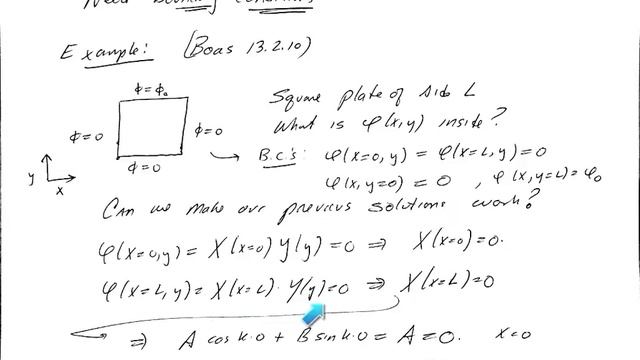 Need boundary conditions
Example: (Boas 13.2.10)
Φ=Φ₀
Φ=0
Φ=0
Φ=0
y
x
Square plate of side L
What is φ(x,y) inside?
B.C.'s: φ(x=0,y) = φ(x=L,y)=0
φ(x,y=0) = 0 , φ(x,y=L)=φ₀
Can we make our previous solutions work?
φ(x=0,y) = X(x=0) Y(y)=0 ⇒ X(x=0)=0.
φ(x=L,y)= X(x=L)· Y(y)=0 ⇒ X(x=L)=0
⇒ A cos k·0 + B sin k·0 = A = 0. x=0